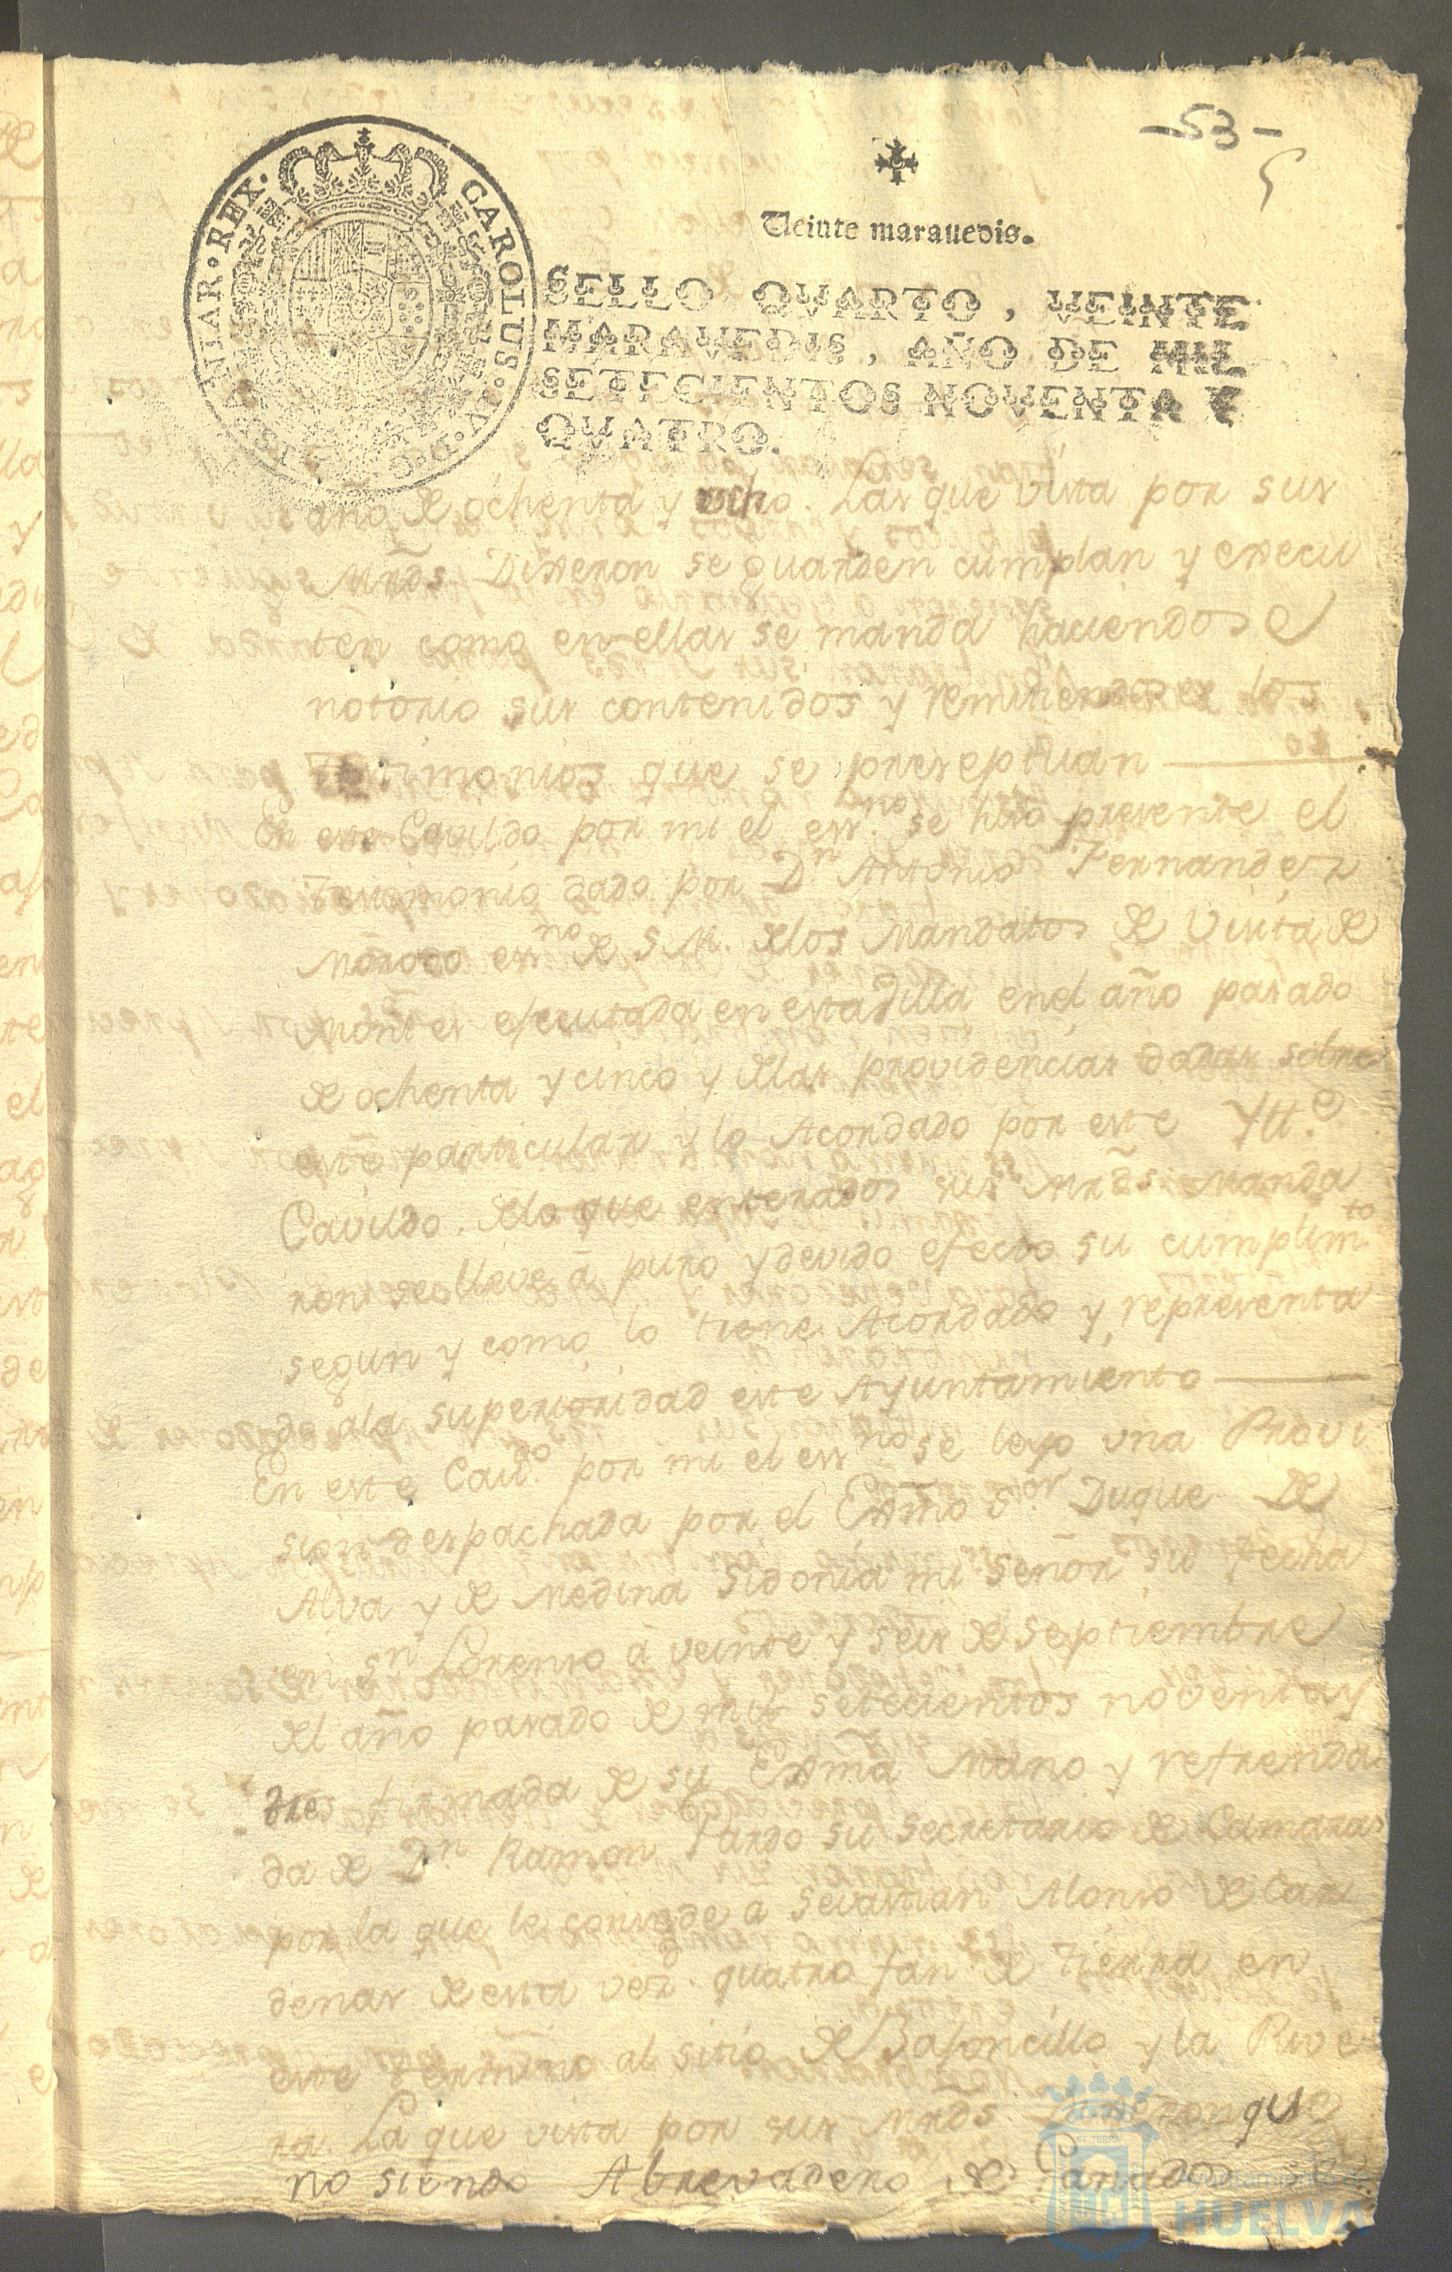 -53-
5
CAROLUS · IV · D · G · HISPANIAR · REX ·
Veinte maravedis.
SELLO QVARTO, VEINTE
MARAVEDIS, AÑO DE MIL
SETECIENTOS NOVENTA Y
QVATRO.
año de ochenta y ocho. Las que vista por sus
Mrds Dixeron se guarden cumplan y execu
ten como en ellas se manda haciendose
notorio sus contenidos y remitiendose los
testimonios que se preseptuan
En este Cavildo por mi el essno se hizo presente el
testimonio dado por Dn Antonio Fernandez
essno de S M. de los Mandatos de Visita de
Montes efecutada en esta Villa en el año pasado
de ochenta y cinco y de las providencias dadas sobre
este particular y lo Acordado por este Ytte
Cavildo. de lo que enterados sus Mrds Manda
ron se lleve â puro y devido efecto su cumplimto
segun y como lo tiene Acordado y representa
do a la superioridad este Ayuntamiento
En este Cavdo por mi el essno se leyo una Provi
sion despachada por el Exmo Sor Duque de
Alva y de Medina Sidonia mi señor su fecha
en Sn Lorenso â veinte y seis de Septiembre
del año pasado de mil setecientos noventa y
tres firmada de su Exma Mano y refrenda
da de Dn Ramon Pardo su Secretario de Camara
por la que le consede a Sebastian Alonso de Car
denas de esta vezd quatro fans de tierra en
este termino al sitio de Bafoncillo y la Rive
ra. La que vista por sus Mrds Dixeron que
no siendo Abrevadero de Ganados
ET TERRÆ
Ayuntamiento de
HUELVA